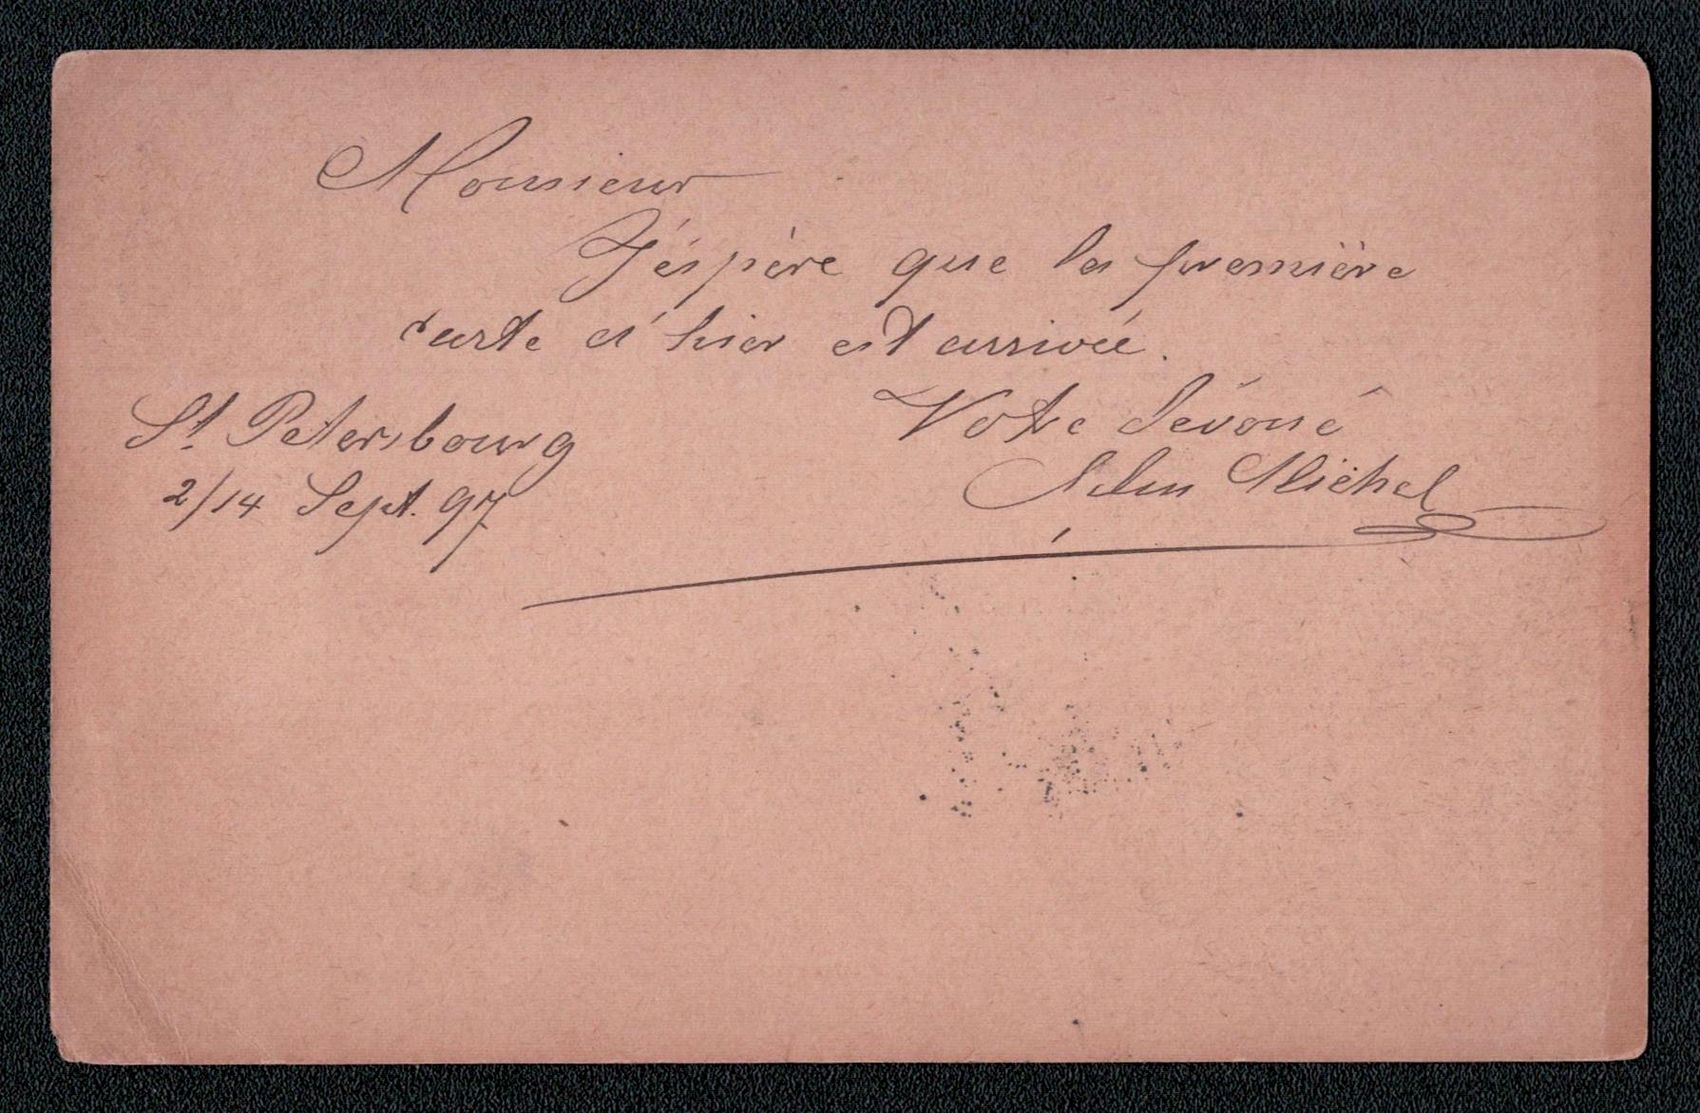 Monsieur
J'éspère que la première
carte d'hier est arrivée.
Votre dévoué
Michel
St. Petersbourg
2/14 Sept. 97